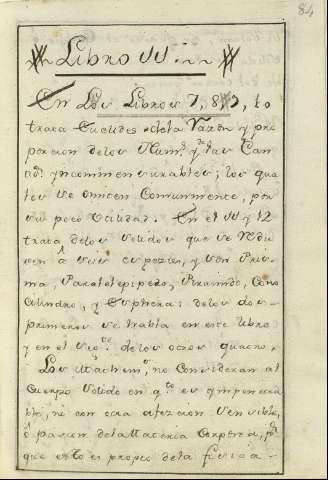 84
Libro 11
En Los Libros 7, 8, 9, 10
trata Euclides de la Razon y pro
porcion de los Num.s y de las Can
tid.s yncommensurables; los qua
les se omiten Comunmente, por
su poca Utilidad. En el 11 y 12
trata de los solidos que se redu
cen à seis especies, y son Pris-
ma, Paralelepipedo, Piramide, Cono
Cilindro, y Esphera: de los dos
primeros se trata en este libro
y en el sig.te de los otros quatro.
Los Mathem.cos no Consideran al
Cuerpo solido en q.to es ympenetra
ble, ni con otra afeccion sensible,
ò pasion de la Materia Corporea, p.r
que esto es propio de la fisica-